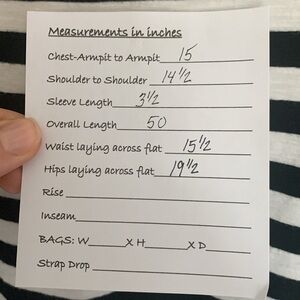 Measurements in inches
Chest-Armpit to Armpit 15
Shoulder to Shoulder 14 1/2
Sleeve Length 3 1/2
Overall Length 50
Waist laying across flat 15 1/2
Hips laying across flat 19 1/2
Rise
Inseam
BAGS: W X H X D
Strap Drop